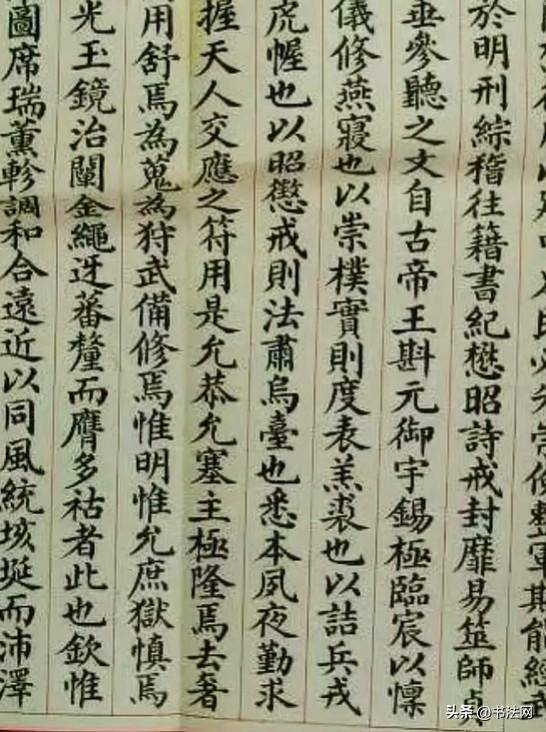 崇儉整軍其能經武
於明刑綜稽往籍書紀懋昭詩戒封靡易筮師貞
垂參聽之文自古帝王斟元御宇錫極臨宸以懍
儀修燕寢也以崇樸實則度表羔裘也以詰兵戎
虎幄也以昭懲戒則法肅烏臺也悉本夙夜勤求
握天人交應之符用是允恭允塞主極隆焉去奢
用舒焉為蒐為狩武備修焉惟明惟允庶獄慎焉
光玉鏡治闡金繩迓蕃釐而膺多祜者此也欽惟
圖席瑞薰軫調和合遠近以同風統垓埏而沛澤
头条 @书法网